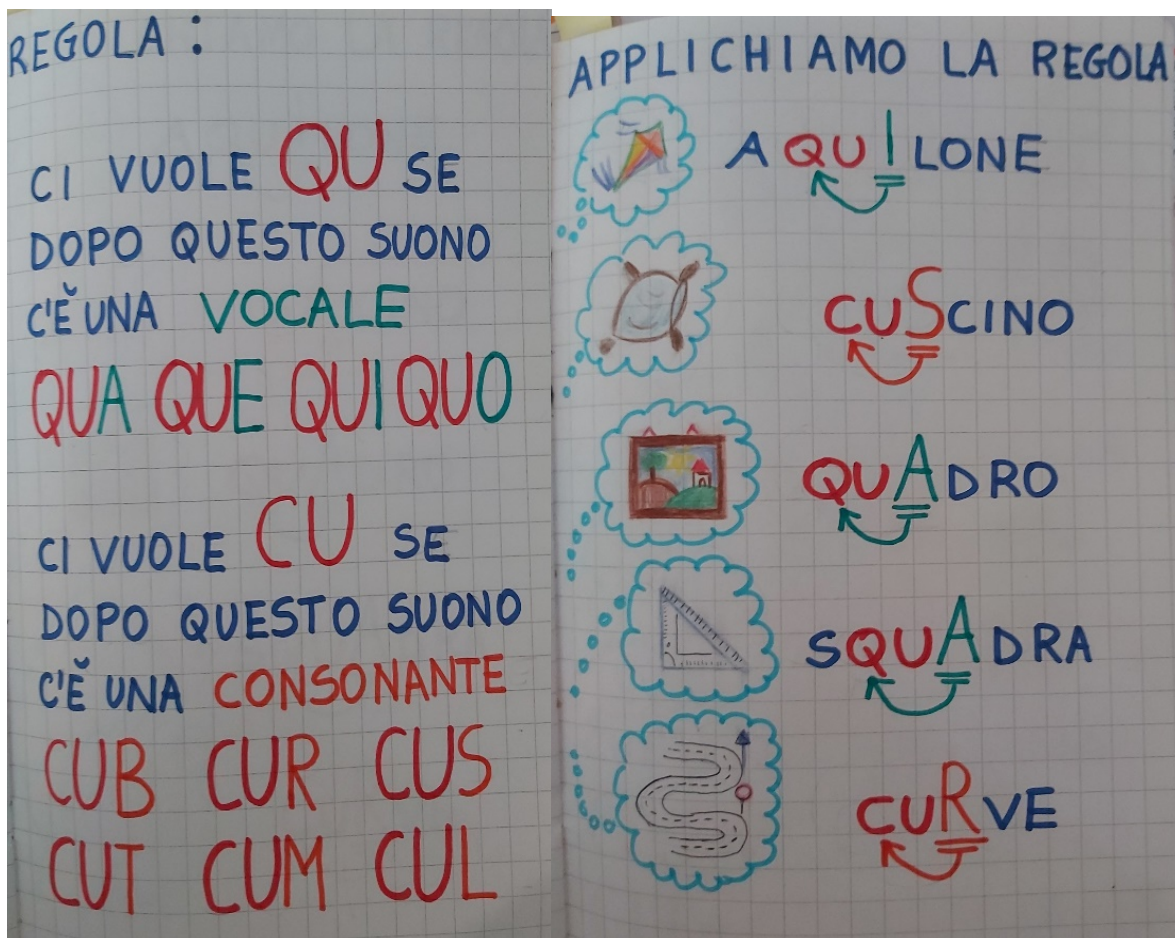 REGOLA :
CI VUOLE QU SE
DOPO QUESTO SUONO
C'È UNA VOCALE
QUA QUE QUI QUO
CI VUOLE CU SE
DOPO QUESTO SUONO
C'È UNA CONSONANTE
CUB CUR CUS
CUT CUM CUL
APPLICHIAMO LA REGOLA
AQUILONE
CUSCINO
QUADRO
SQUADRA
CURVE